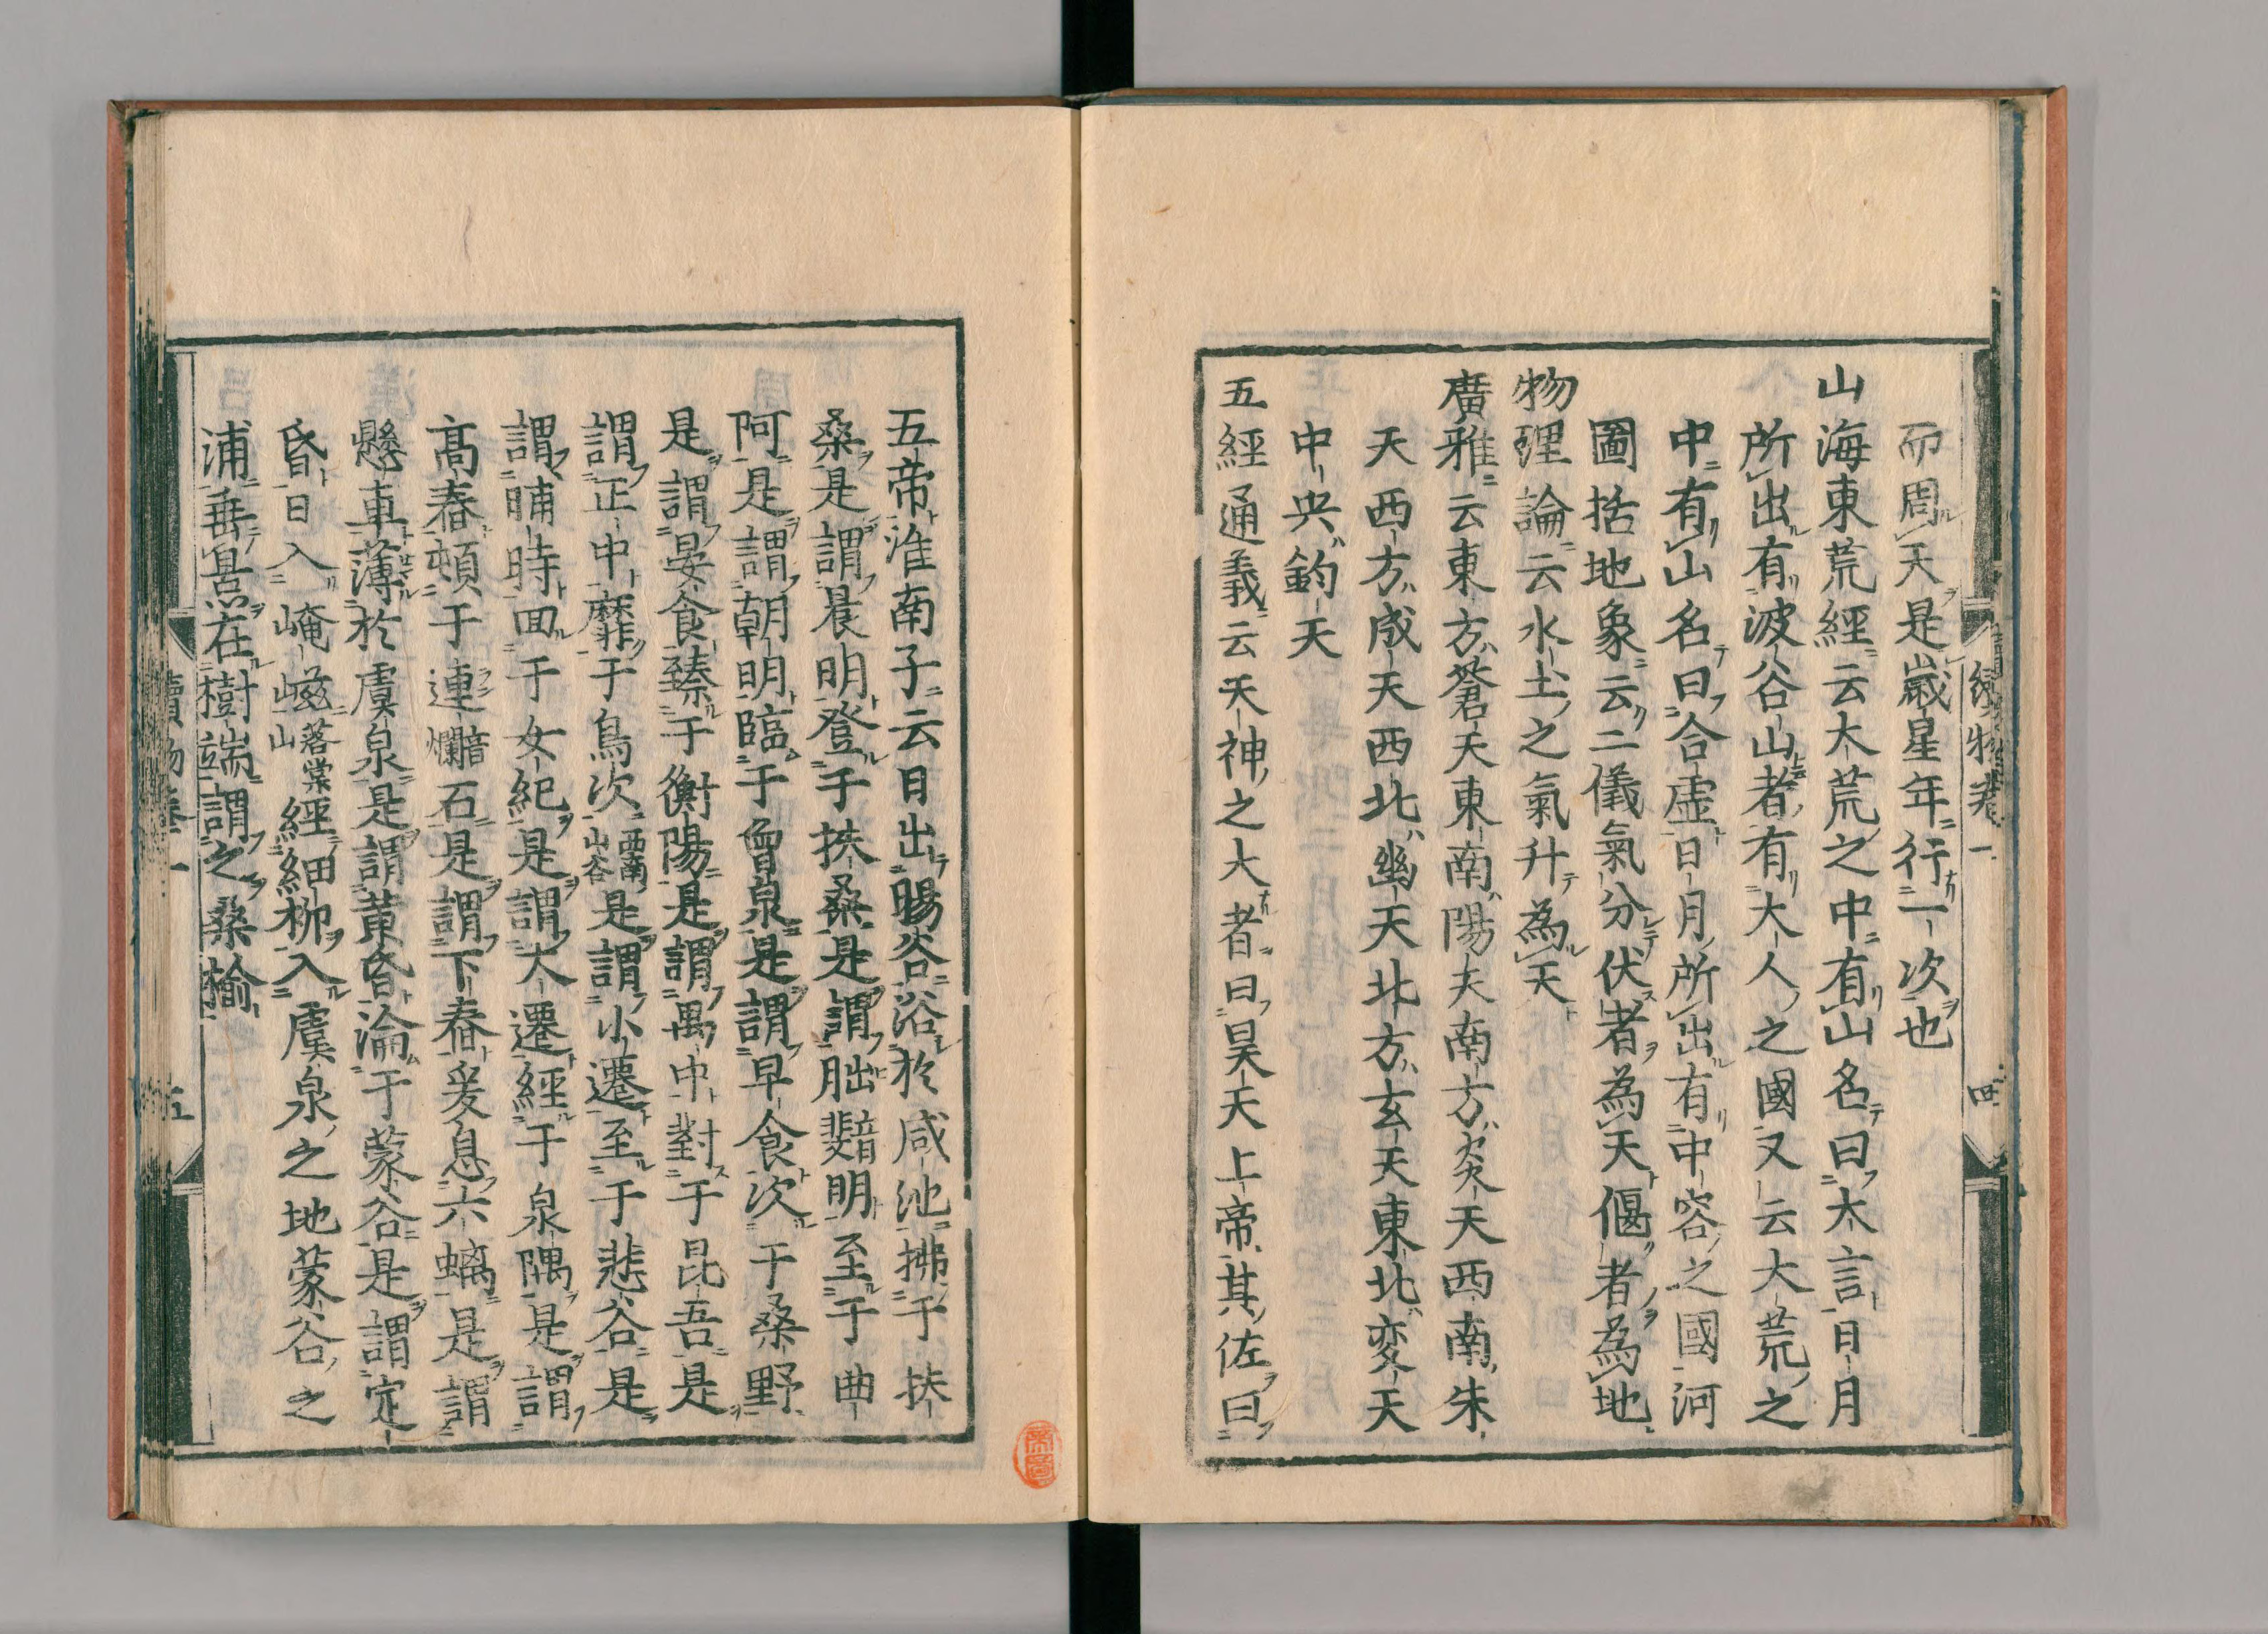 而周天是歳星年行一次也
山海東荒經云大荒之中有山名曰大言日月
所出有波谷山者有大人之國又云大荒之
中有山名曰合虚日月所出有中容之國河
圖括地象云二儀氣分伏者為天偃者為地
物理論云水土之氣升為天
廣雅云東方蒼天東南陽天南方炎天西南朱
天西方成天西北幽天北方玄天東北変天
中央鈞天
五經通義云天神之大者曰昊天上帝其佐曰
五帝淮南子云日出暘谷浴於咸池拂于扶
桑是謂晨明登于扶桑是謂朏音斐明至于曲
阿是謂朝明臨于曾泉是謂早食次于桑野
是謂晏食臻于衡陽是謂禺中對于昆吾是
謂正中靡于鳥次西南山谷是謂小遷至于悲谷是
謂晡時回于女紀是謂大遷經于泉隅是謂
高舂頓于連音爛石是謂下舂爰息六螭是謂
懸車薄於虞泉是謂黄昏淪于蒙谷是謂定
昏日入崦嵫落棠山經細柳入虞泉之地蒙谷之
浦垂景在樹端謂之桑榆